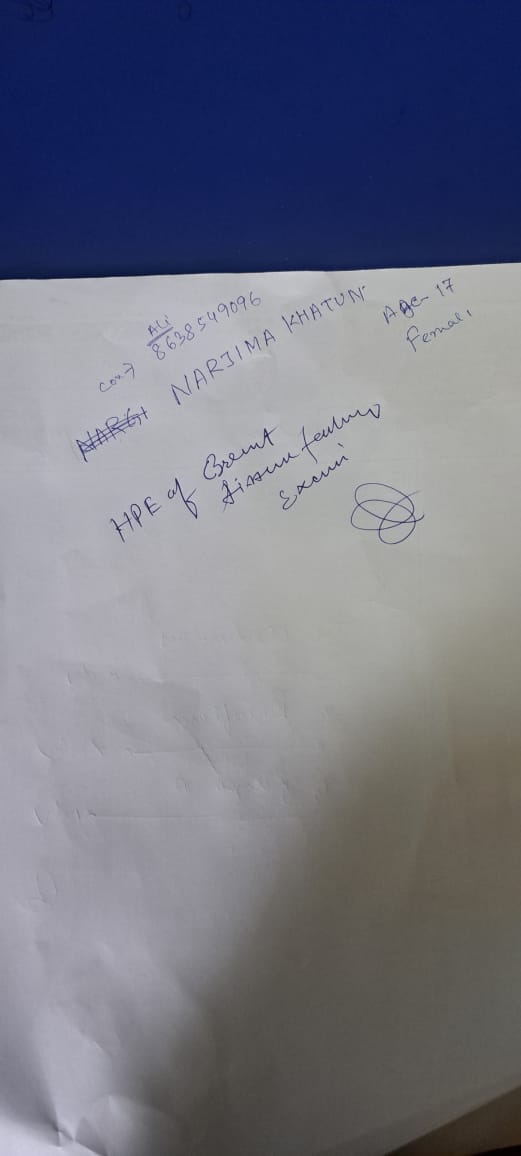 ALI
con→ 8638549096
NARJIMA KHATUN Age- 17
Female
HPE of Breast
tissue